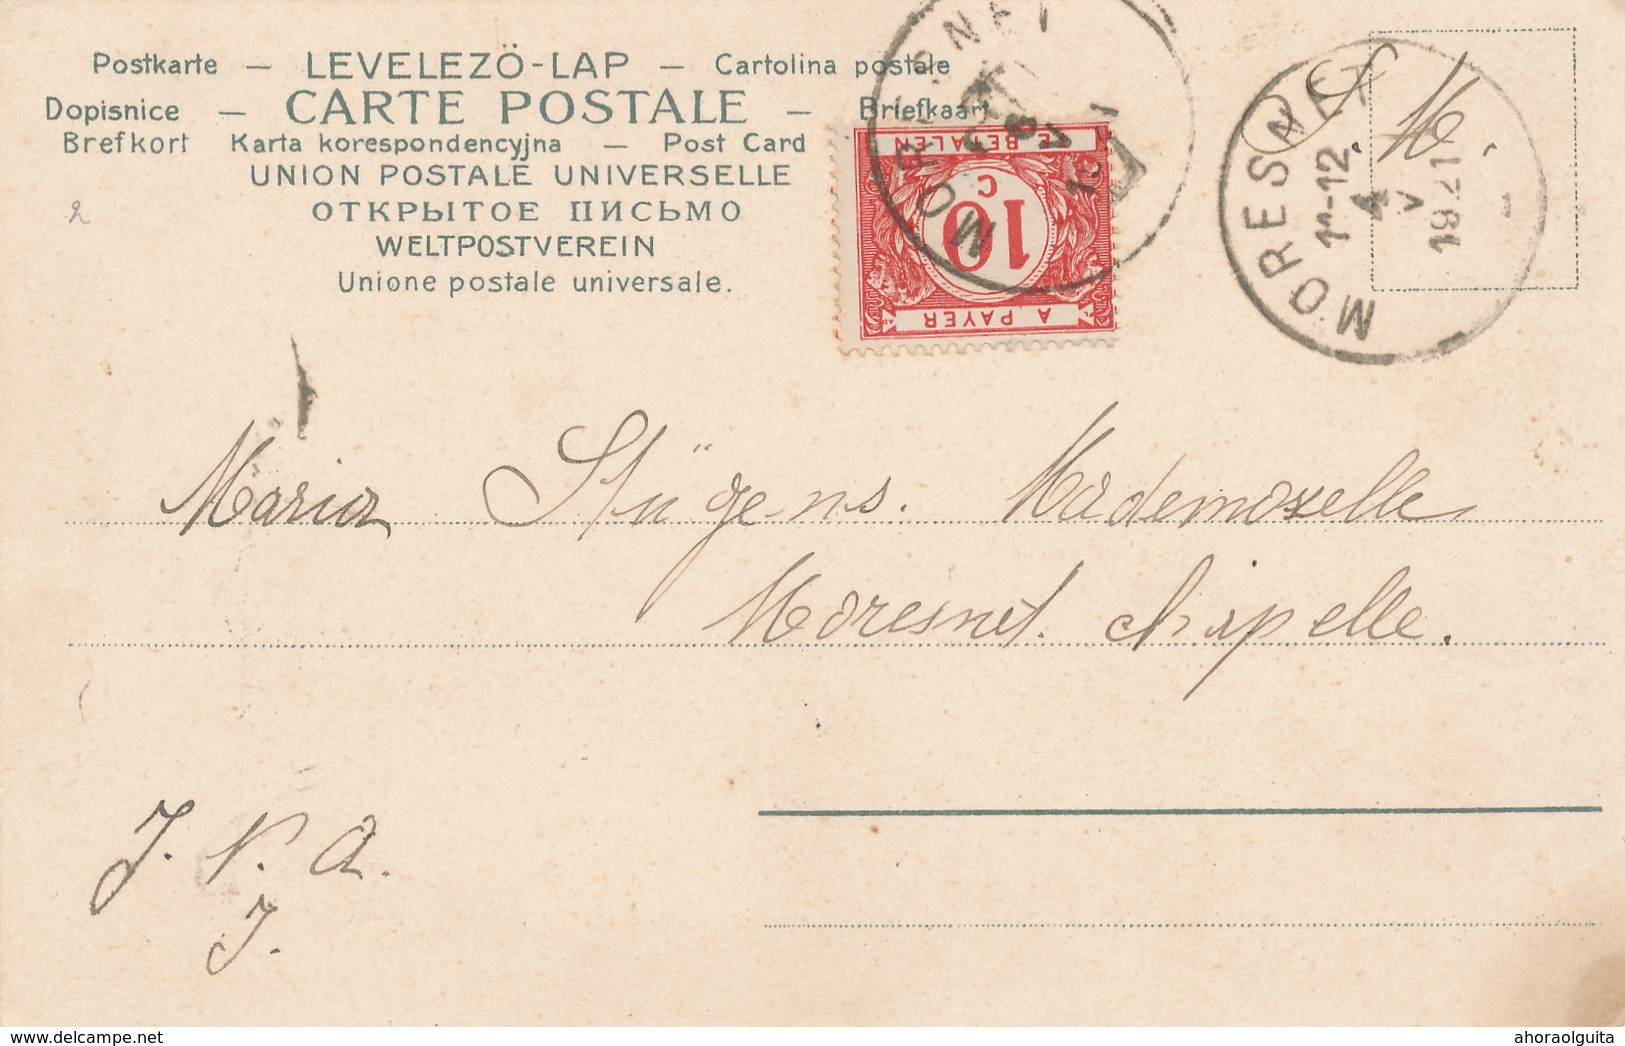 Postkarte — LEVELEZÖ-LAP — Cartolina postale
Dopisnice — CARTE POSTALE — Briefkaart
Brefkort Karta korespondencyjna — Post Card
UNION POSTALE UNIVERSELLE
ОТКРЫТОЕ ПИСЬМО
WELTPOSTVEREIN
Unione postale universale.
2
MORESNET
TE BETALEN
10
C
A PAYER
MORESNET
11-12
4
V
1921
S. M.
Maria Stügens. Mademoselle
Moresnet. chapelle.
J. V. A.
J.
www.delcampe.net
ahoraolguita